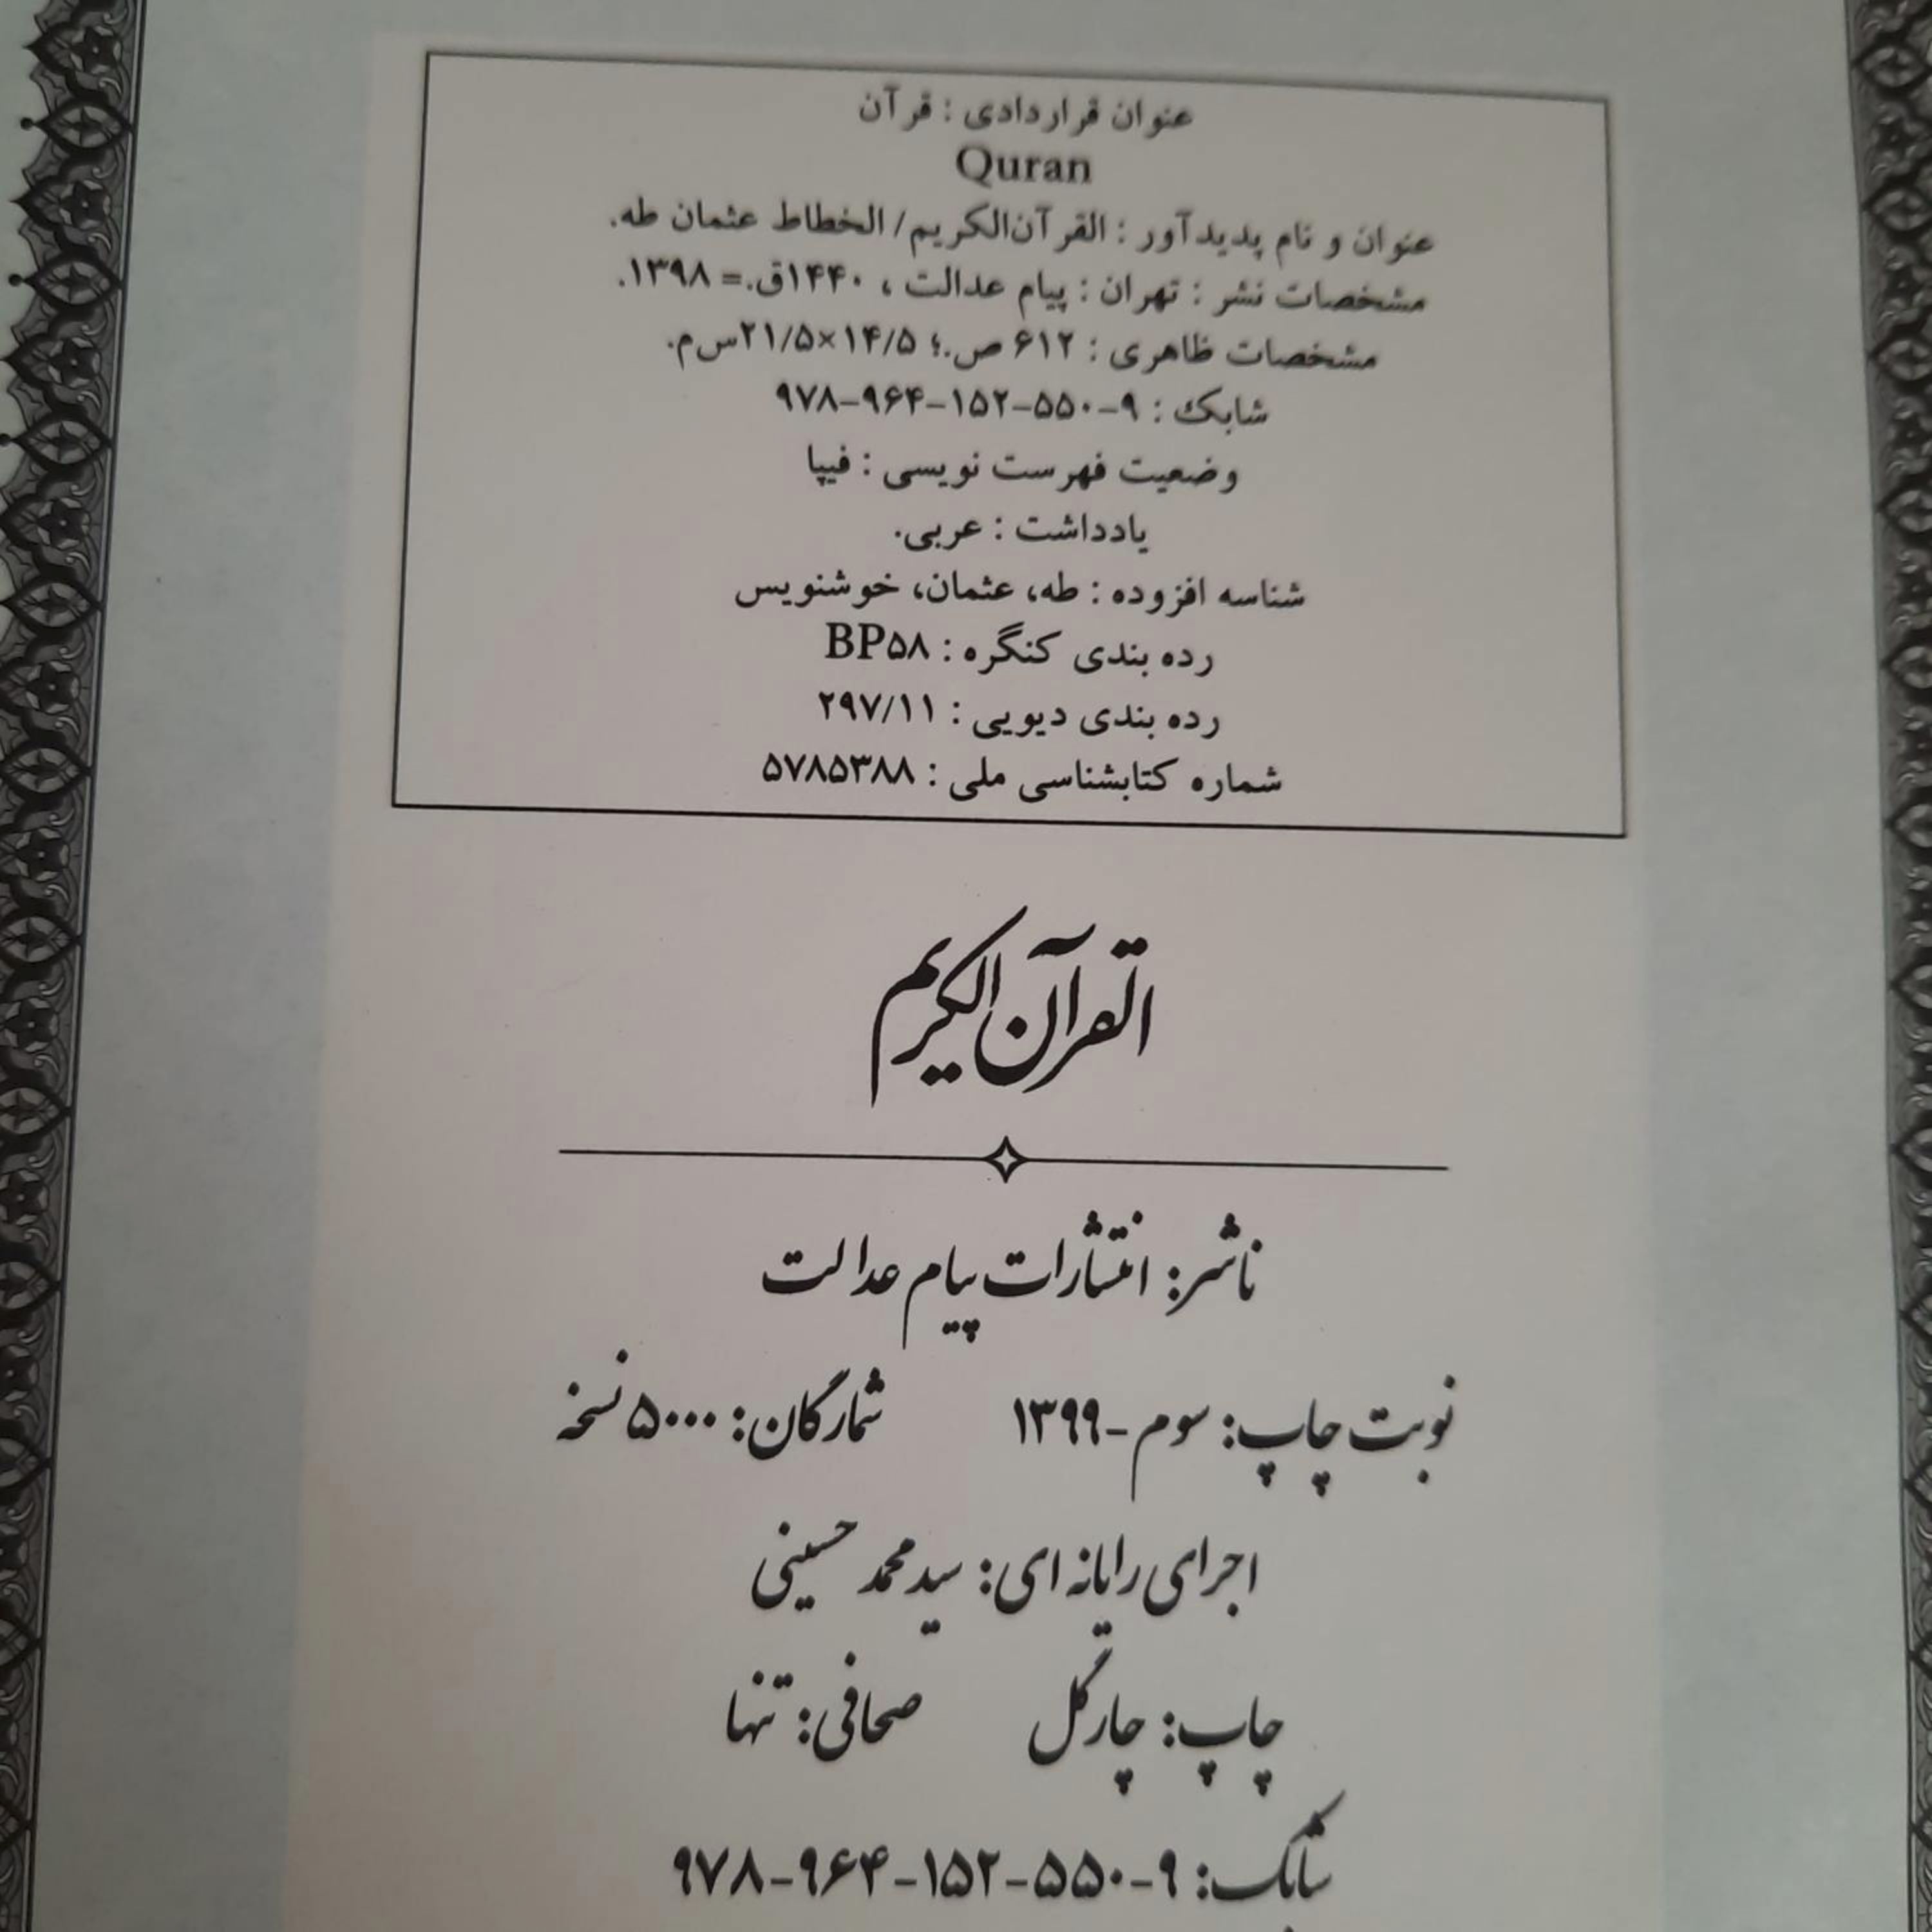 عنوان قراردادی : قرآن
Quran
عنوان و نام پدیدآور : القرآن‌الکریم/ الخطاط عثمان طه.
مشخصات نشر : تهران : پیام عدالت ، ۱۴۴۰ق.= ۱۳۹۸.
مشخصات ظاهری : ۶۱۲ ص.؛ ۱۴/۵×۲۱/۵س‌م.
شابک : ۹۷۸-۹۶۴-۱۵۲-۵۵۰-۹
وضعیت فهرست نویسی : فیپا
یادداشت : عربی.
شناسه افزوده : طه، عثمان، خوشنویس
رده بندی کنگره : BP۵۸
رده بندی دیویی : ۲۹۷/۱۱
شماره کتابشناسی ملی : ۵۷۸۵۳۸۸
القرآن الکریم
ناشر: انتشارات پیام عدالت
نوبت چاپ: سوم -۱۳۹۹ شمارگان: ۵۰۰۰ نسخه
اجرای رایانه ای: سید محمد حسینی
چاپ: چارگل صحافی: تنها
شابک: ۹۷۸-۹۶۴-۱۵۲-۵۵۰-۹